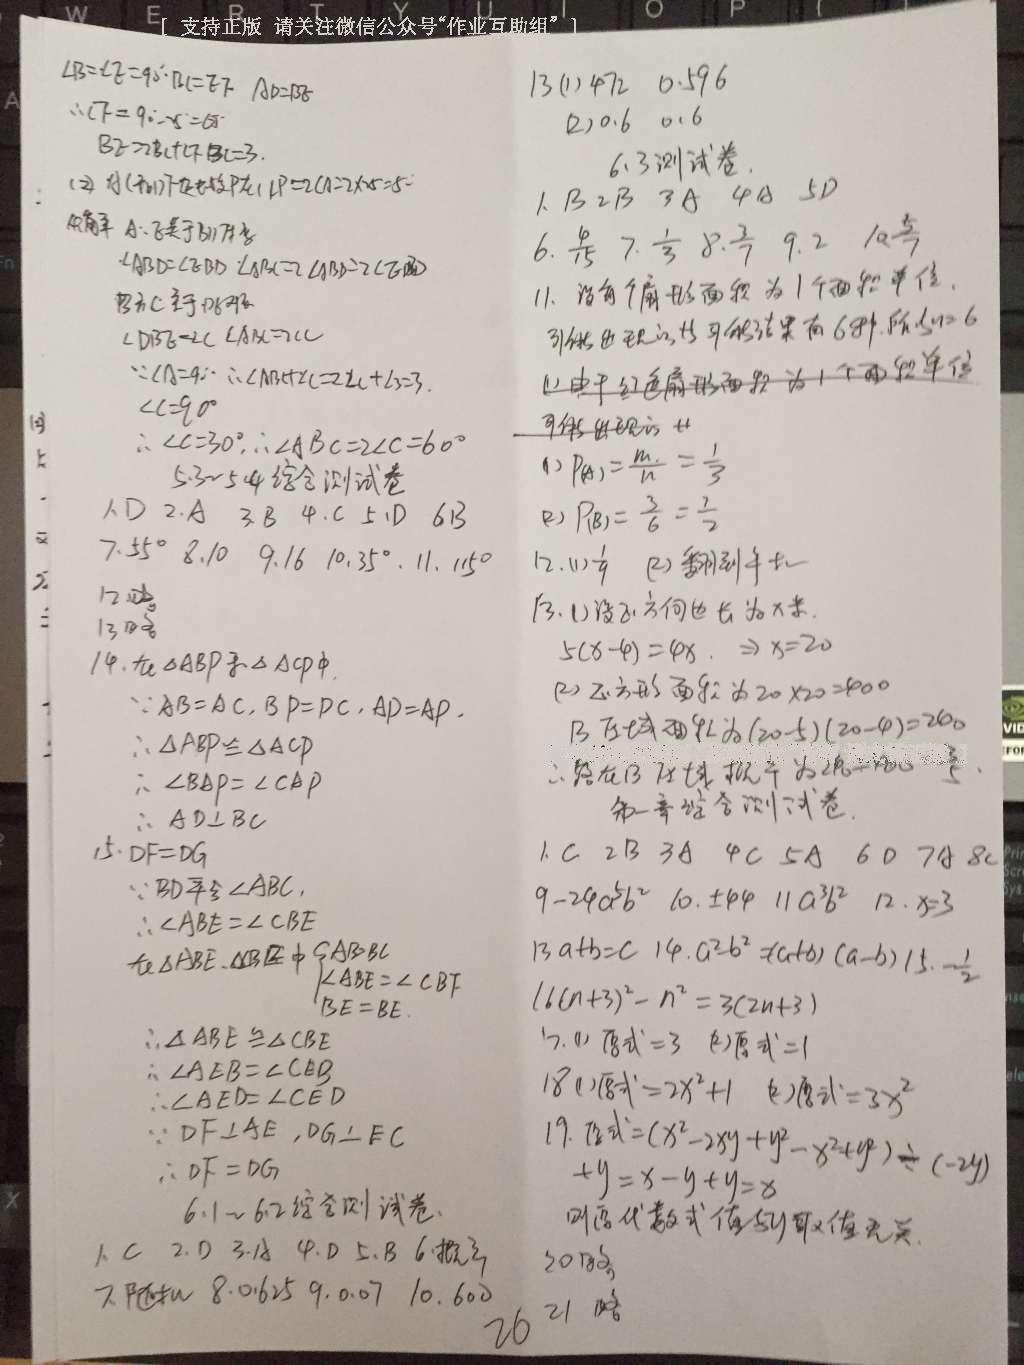 [ 支持正版 请关注微信公众号“作业互助组” ]
∠B=∠E=90° BC=EF AD=BE
BE=2BC+CF BC=3.
∠ABD=∠EBD ∠ABC=2∠ABD=2∠E
∠DBE=∠C ∠ABC=2∠C
∵∠A=90° ∴∠ABC+∠C=2∠C+∠C=3.
∠C=90°
∴∠C=30°,∴∠ABC=2∠C=60°
5.3~5.4综合测试卷
1.D 2.A 3.B 4.C 5.D 6.B
7.55° 8.10 9.16 10.35°. 11. 115°
12略
13略
14.在△ABP和△ACP中.
∵AB=AC, BP=PC, AP=AP.
∴△ABP≌△ACP
∴∠BAP=∠CAP
∴AD⊥BC
15.DF=DG
∵BD平分∠ABC,
∴∠ABE=∠CBE
在△ABE、△CBE中{AB=BC
∠ABE=∠CBE
BE=BE.
∴△ABE≌△CBE
∴∠AEB=∠CEB
∴∠AED=∠CED
∵DF⊥AE,DG⊥EC
∴DF=DG
6.1~6.2综合测试卷.
1.C 2.D 3.A 4.D 5.B 6.概率
7.随机 8.0.625 9.0.07 10.600
13(1)472 0.596
(2)0.6 0.6
6.3测试卷.
1.B 2B 3A 4A 5D
6. 4/15 7. 1/3 8. 3/7 9.2 10. 5/7
11. 设每个扇形面积为1个面积单位,
可能出现的结果有6种,所以n=6
(1)由于红色扇形面积为1个面积单位
可能出现的
(1) P(A)=m/n=1/3
(2) P(B)=3/6=1/2
12.(1) 1/9 (2)翻到
13.(1)设正方何边长为x米.
5(x-4)=4x. ⇒x=20
(2)正方形面积为20×20=400
B区域面积为(20-5)(20-4)=240
∴落在B区域概率为240÷400 3/5.
第一章综合测试卷.
1.C 2B 3A 4C 5A 6D 7A 8C
9-24a⁵b² 10.±44 11 a³b² 12.x=3
13 a+b=c 14.a²-b²=(a+b)(a-b) 15.-1/2
16(n+3)²-n²=3(2n+3)
17.(1)原式=3 (2)原式=1
18(1)原式=2x²+1 (2)原式=3x²
19.原式=(x²-2xy+y²-x²+y²)÷(-2y)
+y=x-y+y=x
则原代数式值与y取值无关.
20略
21 略
26